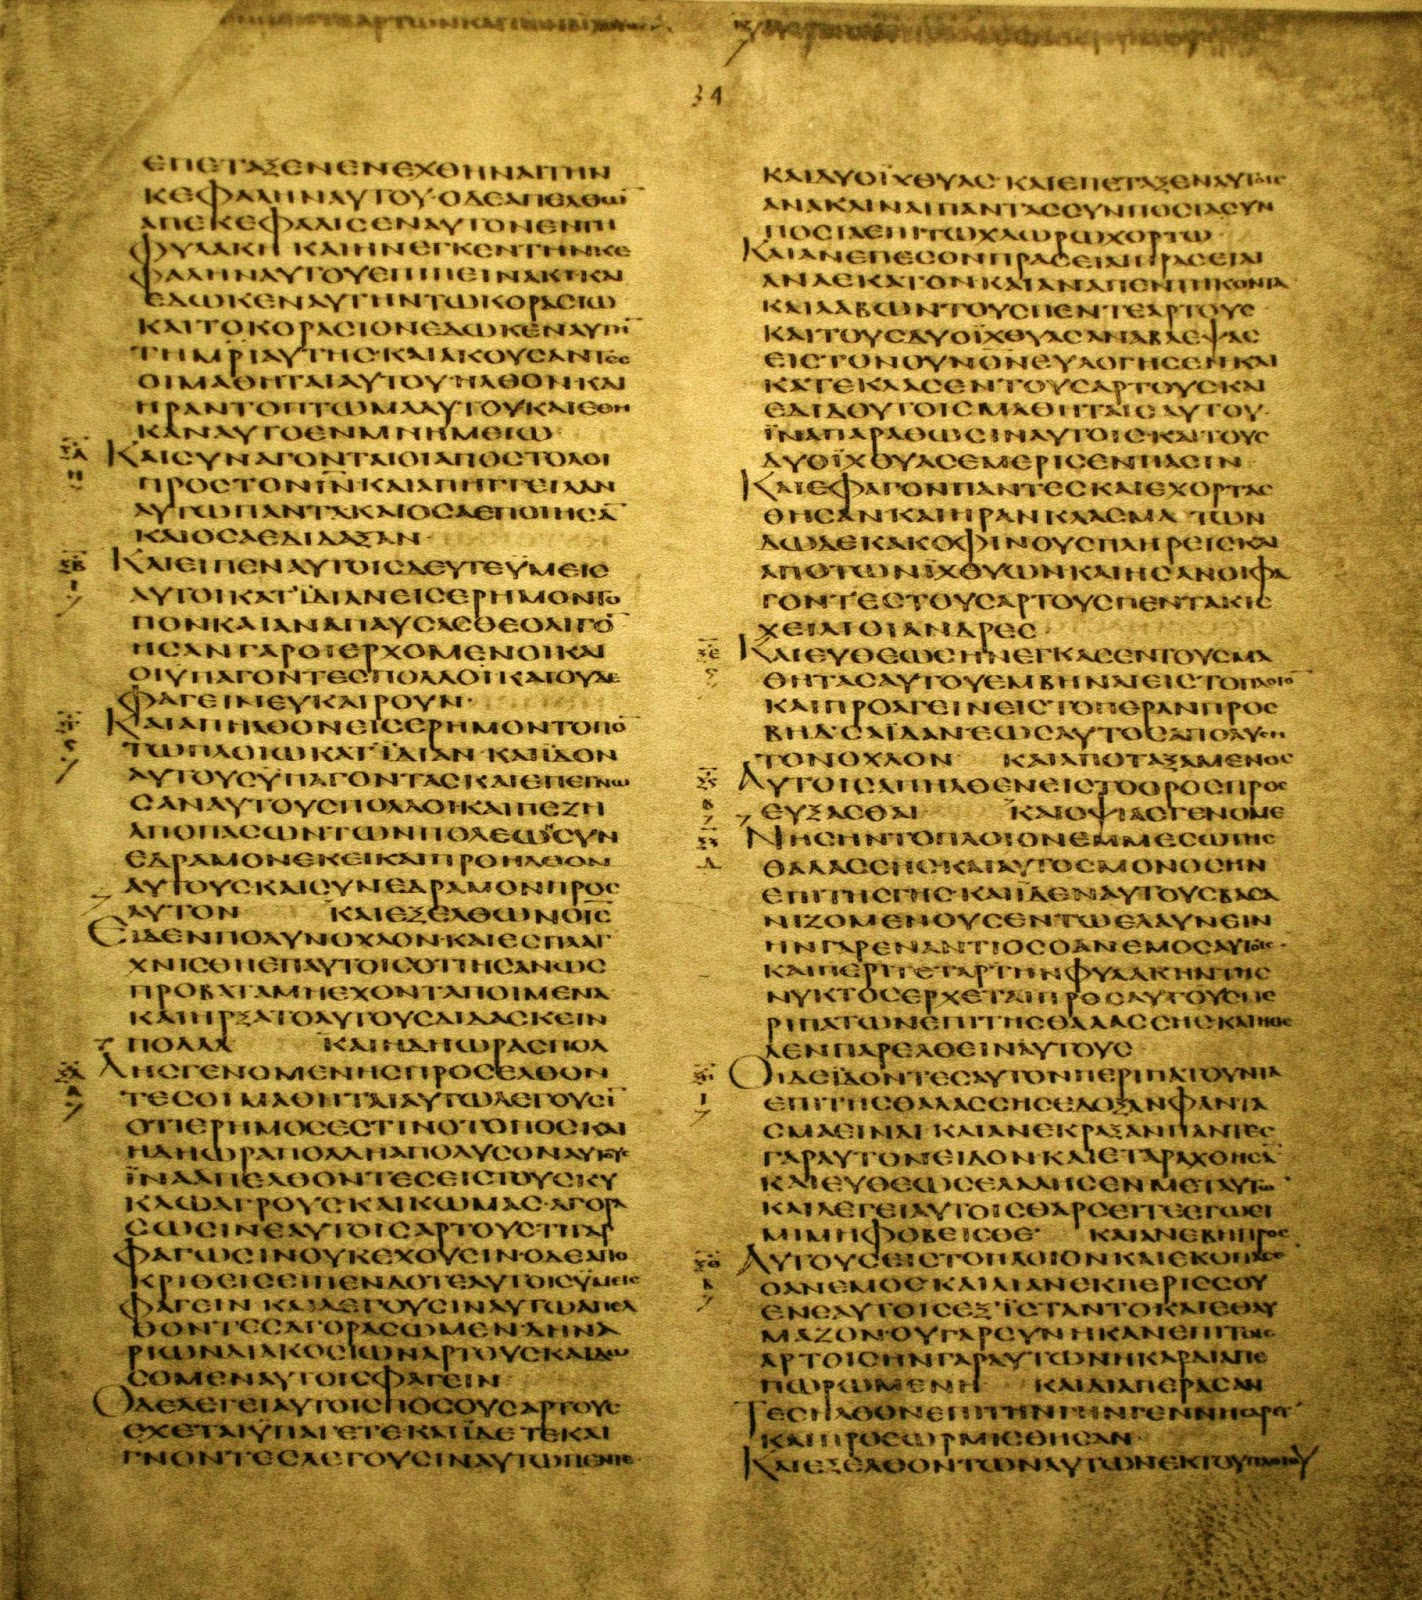 34
ΕΠΕΤΑΞΕΝΕΝΕΧΘΗΝΑΙΤΗΝ
ΚΕΦΑΛΗΝΑΥΤΟΥ·ΟΔΕΑΠΕΛΘΩ̅
ΑΠΕΚΕΦΑΛΙΣΕΝΑΥΤΟΝΕΝΤΗ
ΦΥΛΑΚΗ ΚΑΙΗΝΕΓΚΕΝΤΗΝΚΕ
ΦΑΛΗΝΑΥΤΟΥΕΠΙΠΙΝΑΚΙΚΑΙ
ΕΔΩΚΕΝΑΥΤΗΝΤΩΚΟΡΑΣΙΩ
ΚΑΙΤΟΚΟΡΑΣΙΟΝΕΔΩΚΕΝΑΥΤΗ̅
ΤΗΜΡΙΑΥΤΗΣ·ΚΑΙΑΚΟΥΣΑΝΤΕΣ
ΟΙΜΑΘΗΤΑΙΑΥΤΟΥ·ΗΛΘΟΝΚΑΙ
ΗΡΑΝΤΟΠΤΩΜΑΑΥΤΟΥΚΑΙΕΘΗ
ΚΑΝΑΥΤΟΕΝΜΝΗΜΕΙΩ
ΚΑΙΣΥΝΑΓΟΝΤΑΙΟΙΑΠΟΣΤΟΛΟΙ
ΠΡΟΣΤΟΝΙ̅Ν̅·ΚΑΙΑΠΗΓΓΕΙΛΑΝ
ΑΥΤΩΠΑΝΤΑΚΑΙΟΣΑΕΠΟΙΗΣΑ̅
ΚΑΙΟΣΑΕΔΙΔΑΞΑΝ·
ΚΑΙΕΙΠΕΝΑΥΤΟΙΣΔΕΥΤΕΫΜΕΙΣ
ΑΥΤΟΙΚΑΤΪΔΙΑΝΕΙΣΕΡΗΜΟΝΤΟ
ΠΟΝΚΑΙΑΝΑΠΑΥΣΑΣΘΕΟΛΙΓΟ̅
ΗΣΑΝΓΑΡΟΙΕΡΧΟΜΕΝΟΙΚΑΙ
ΟΙΫΠΑΓΟΝΤΕΣΠΟΛΛΟΙ·ΚΑΙΟΥΔΕ
ΦΑΓΕΙΝΕΥΚΑΙΡΟΥΝ·
ΚΑΙΑΠΗΛΘΟΝΕΙΣΕΡΗΜΟΝΤΟΠΟ̅
ΤΩΠΛΟΙΩΚΑΤΪΔΙΑΝ·ΚΑΙΪΔΟΝ
ΑΥΤΟΥΣΫΠΑΓΟΝΤΑΣΚΑΙΕΠΕΓΝΩ
ΣΑΝΑΥΤΟΥΣΠΟΛΛΟΙ·ΚΑΙΠΕΖΗ
ΑΠΟΠΑΣΩΝΤΩΝΠΟΛΕΩΣΥΝ
ΕΔΡΑΜΟΝΕΚΕΙΚΑΙΠΡΟΗΛΘΟΝ
ΑΥΤΟΥΣΚΑΙΣΥΝΕΔΡΑΜΟΝΠΡΟΣ
ΑΥΤΟΝ ΚΑΙΕΞΕΛΘΩΝΟΙ̅Σ̅
ΕΙΔΕΝΠΟΛΥΝΟΧΛΟΝ·ΚΑΙΕΣΠΛΑΓ
ΧΝΙΣΘΗΕΠΑΥΤΟΙΣΟΤΙΗΣΑΝΩΣ
ΠΡΟΒΑΤΑΜΗΕΧΟΝΤΑΠΟΙΜΕΝΑ
ΚΑΙΗΡΞΑΤΟΑΥΤΟΥΣΔΙΔΑΣΚΕΙΝ
ΠΟΛΛΑ ΚΑΙΗΔΗΩΡΑΣΠΟΛ
ΛΗΣΓΕΝΟΜΕΝΗΣΠΡΟΣΕΛΘΟΝ
ΤΕΣΟΙΜΑΘΗΤΑΙΑΥΤΩΛΕΓΟΥΣΙ̅
ΟΤΙΕΡΗΜΟΣΕΣΤΙΝΟΤΟΠΟΣΚΑΙ
ΗΔΗΩΡΑΠΟΛΛΗΑΠΟΛΥΣΟΝΑΥΤΟΥΣ
ΪΝΑΑΠΕΛΘΟΝΤΕΣΕΙΣΤΟΥΣΚΥ
ΚΛΩΑΓΡΟΥΣΚΑΙΚΩΜΑΣ·ΑΓΟΡΑ
ΣΩΣΙΝΕΑΥΤΟΙΣΑΡΤΟΥΣΤΙΓΑΡ
ΦΑΓΩΣΙΝΟΥΚΕΧΟΥΣΙΝ·ΟΔΕΑΠΟ
ΚΡΙΘΕΙΣΕΙΠΕΝΔΟΤΕΑΥΤΟΙΣΫΜΕΙΣ
ΦΑΓΕΙΝ ΚΑΙΛΕΓΟΥΣΙΝΑΥΤΩΑΠΕΛ
ΘΟΝΤΕΣΑΓΟΡΑΣΩΜΕΝΔΗΝΑ
ΡΙΩΝΔΙΑΚΟΣΙΩΝΑΡΤΟΥΣΚΑΙΔΩ
ΣΟΜΕΝΑΥΤΟΙΣΦΑΓΕΙΝ
ΟΔΕΛΕΓΕΙΑΥΤΟΙΣΠΟΣΟΥΣΑΡΤΟΥΣ
ΕΧΕΤΑΙΫΠΑΓΕΤΕΚΑΙΪΔΕΤΕΚΑΙ
ΓΝΟΝΤΕΣΛΕΓΟΥΣΙΝΑΥΤΩΠΕΝΤΕ
ΚΑΙΔΥΟΪΧΘΥΑΣ·ΚΑΙΕΠΕΤΑΞΕΝΑΥΤΟΙΣ
ΑΝΑΚΛΙΝΑΙΠΑΝΤΑΣΣΥΝΠΟΣΙΑΣΥΝ
ΠΟΣΙΑΕΠΙΤΩΧΛΩΡΩΧΟΡΤΩ
ΚΑΙΑΝΕΠΕΣΟΝΠΡΑΣΕΙΑΙΠΡΑΣΕΙΑΙ
ΑΝΑΕΚΑΤΟΝΚΑΙΑΝΑΠΕΝΤΗΚΟΝΤΑ
ΚΑΙΛΑΒΩΝΤΟΥΣΠΕΝΤΕΑΡΤΟΥΣ
ΚΑΙΤΟΥΣΔΥΟΪΧΘΥΑΣΑΝΑΒΛΕΨΑΣ
ΕΙΣΤΟΝΟΥΝΟΝΕΥΛΟΓΗΣΕΝΚΑΙ
ΚΑΤΕΚΛΑΣΕΝΤΟΥΣΑΡΤΟΥΣΚΑΙ
ΕΔΙΔΟΥΤΟΙΣΜΑΘΗΤΑΙΣΑΥΤΟΥ·
ΪΝΑΠΑΡΑΘΩΣΙΝΑΥΤΟΙΣ·ΚΑΙΤΟΥΣ
ΔΥΟΪΧΘΥΑΣΕΜΕΡΙΣΕΝΠΑΣΙΝ
ΚΑΙΕΦΑΓΟΝΠΑΝΤΕΣΚΑΙΕΧΟΡΤΑΣ
ΘΗΣΑΝΚΑΙΗΡΑΝΚΛΑΣΜΑ ΤΩΝ
ΔΩΔΕΚΑΚΟΦΙΝΟΥΣΠΛΗΡΕΙΣΚΑΙ
ΑΠΟΤΩΝΪΧΘΥΩΝΚΑΙΗΣΑΝΟΙΦΑ
ΓΟΝΤΕΣΤΟΥΣΑΡΤΟΥΣΠΕΝΤΑΚΙΣ
ΧΕΙΛΙΟΙΑΝΔΡΕΣ·
ΚΑΙΕΥΘΕΩΣΗΝΕΓΚΑΣΕΝΤΟΥΣΜΑ
ΘΗΤΑΣΑΥΤΟΥΕΜΒΗΝΑΙΕΙΣΤΟΠΛΟΙΟ̅
ΚΑΙΠΡΟΑΓΕΙΝΕΙΣΤΟΠΕΡΑΝΠΡΟΣ
ΒΗΔΣΑΪΔΑΝΕΩΣΑΥΤΟΣΑΠΟΛΥΣΗ
ΤΟΝΟΧΛΟΝ ΚΑΙΑΠΟΤΑΞΑΜΕΝΟΣ
ΑΥΤΟΙΣΑΠΗΛΘΕΝΕΙΣΤΟΟΡΟΣΠΡΟΣ
ΕΥΞΑΣΘΑΙ ΚΑΙΟΨΙΑΣΓΕΝΟΜΕ
ΝΗΣΗΝΤΟΠΛΟΙΟΝΕΜΜΕΣΩΤΗΣ
ΘΑΛΑΣΣΗΣ·ΚΑΙΑΥΤΟΣΜΟΝΟΣΗΝ
ΕΠΙΤΗΣΓΗΣ·ΚΑΙΪΔΕΝΑΥΤΟΥΣΒΑΣΑ
ΝΙΖΟΜΕΝΟΥΣΕΝΤΩΕΛΑΥΝΕΙΝ
ΗΝΓΑΡΕΝΑΝΤΙΟΣΟΑΝΕΜΟΣΑΥΤΟΙΣ·
ΚΑΙΠΕΡΙΤΕΤΑΡΤΗΝΦΥΛΑΚΗΝΤΗΣ
ΝΥΚΤΟΣΕΡΧΕΤΑΙΠΡΟΣΑΥΤΟΥΣΠΕ
ΡΙΠΑΤΩΝΕΠΙΤΗΣΘΑΛΑΣΣΗΣΚΑΙΗΘΕ
ΛΕΝΠΑΡΕΛΘΕΙΝΑΥΤΟΥΣ
ΟΙΔΕΪΔΟΝΤΕΣΑΥΤΟΝΠΕΡΙΠΑΤΟΥΝΤΑ
ΕΠΙΤΗΣΘΑΛΑΣΣΗΣΕΔΟΞΑΝΦΑΝΤΑ
ΣΜΑΕΙΝΑΙ ΚΑΙΑΝΕΚΡΑΞΑΝΠΑΝΤΕΣ
ΓΑΡΑΥΤΟΝΕΙΔΟΝΚΑΙΕΤΑΡΑΧΘΗΣΑ̅
ΚΑΙΕΥΘΕΩΣΕΛΑΛΗΣΕΝΜΕΤΑΥΤΩ̅
ΚΑΙΛΕΓΕΙΑΥΤΟΙΣΘΑΡΣΕΙΤΕΕΓΩΕΙ
ΜΙΜΗΦΟΒΕΙΣΘΕ· ΚΑΙΑΝΕΒΗΠΡΟΣ
ΑΥΤΟΥΣΕΙΣΤΟΠΛΟΙΟΝΚΑΙΕΚΟΠΑΣΕ
ΟΑΝΕΜΟΣΚΑΙΛΙΑΝΕΚΠΕΡΙΣΣΟΥ
ΕΝΕΑΥΤΟΙΣΕΞΪΣΤΑΝΤΟΚΑΙΕΘΑΥ
ΜΑΖΟΝ·ΟΥΓΑΡΣΥΝΗΚΑΝΕΠΙΤΟΙΣ
ΑΡΤΟΙΣΗΝΓΑΡΑΥΤΩΝΗΚΑΡΔΙΑΠΕ
ΠΩΡΩΜΕΝΗ ΚΑΙΔΙΑΠΕΡΑΣΑΝ
ΤΕΣΗΛΘΟΝΕΠΙΤΗΝΓΗΝΓΕΝΝΗΣΑΡΕΤ
ΚΑΙΠΡΟΣΩΡΜΙΣΘΗΣΑΝ·
ΚΑΙΕΞΕΛΘΟΝΤΩΝΑΥΤΩΝΕΚΤΟΥΠΛΟΙΟΥ